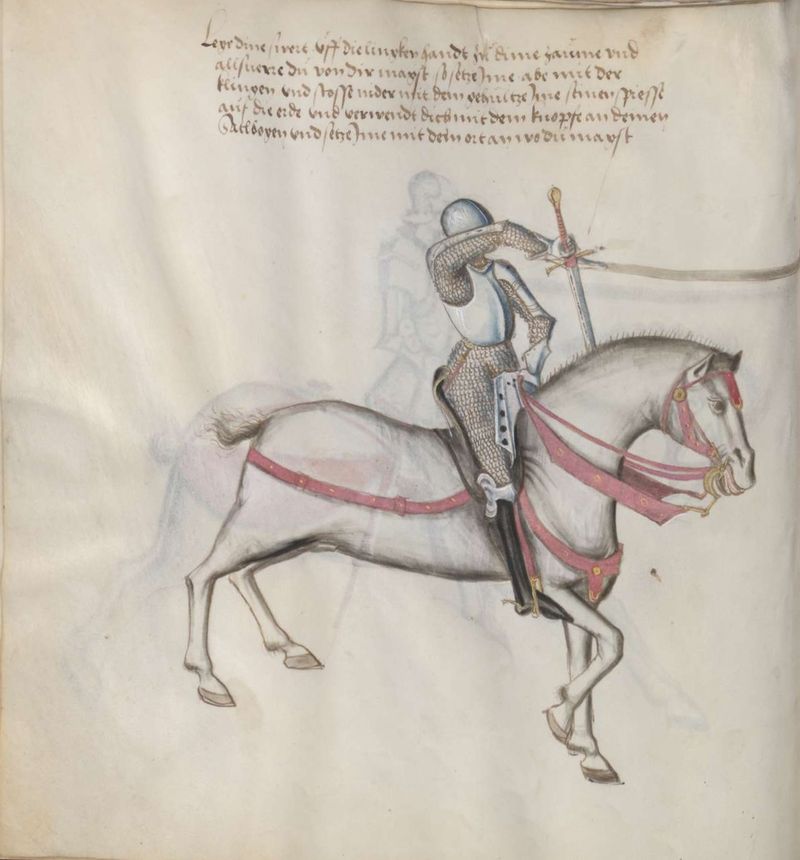 Leg dine swert uff die lincken handt zu dime zaume und
allsverre du von dir magst so setze Ime abe mit der
klingen und stosse nider mit dem gehultze Ime sinen spesse
auf die erde und verwendt dich mit dem knopffe an deinen
Satlbogen und setze Ime mit dem ort an wo du magst